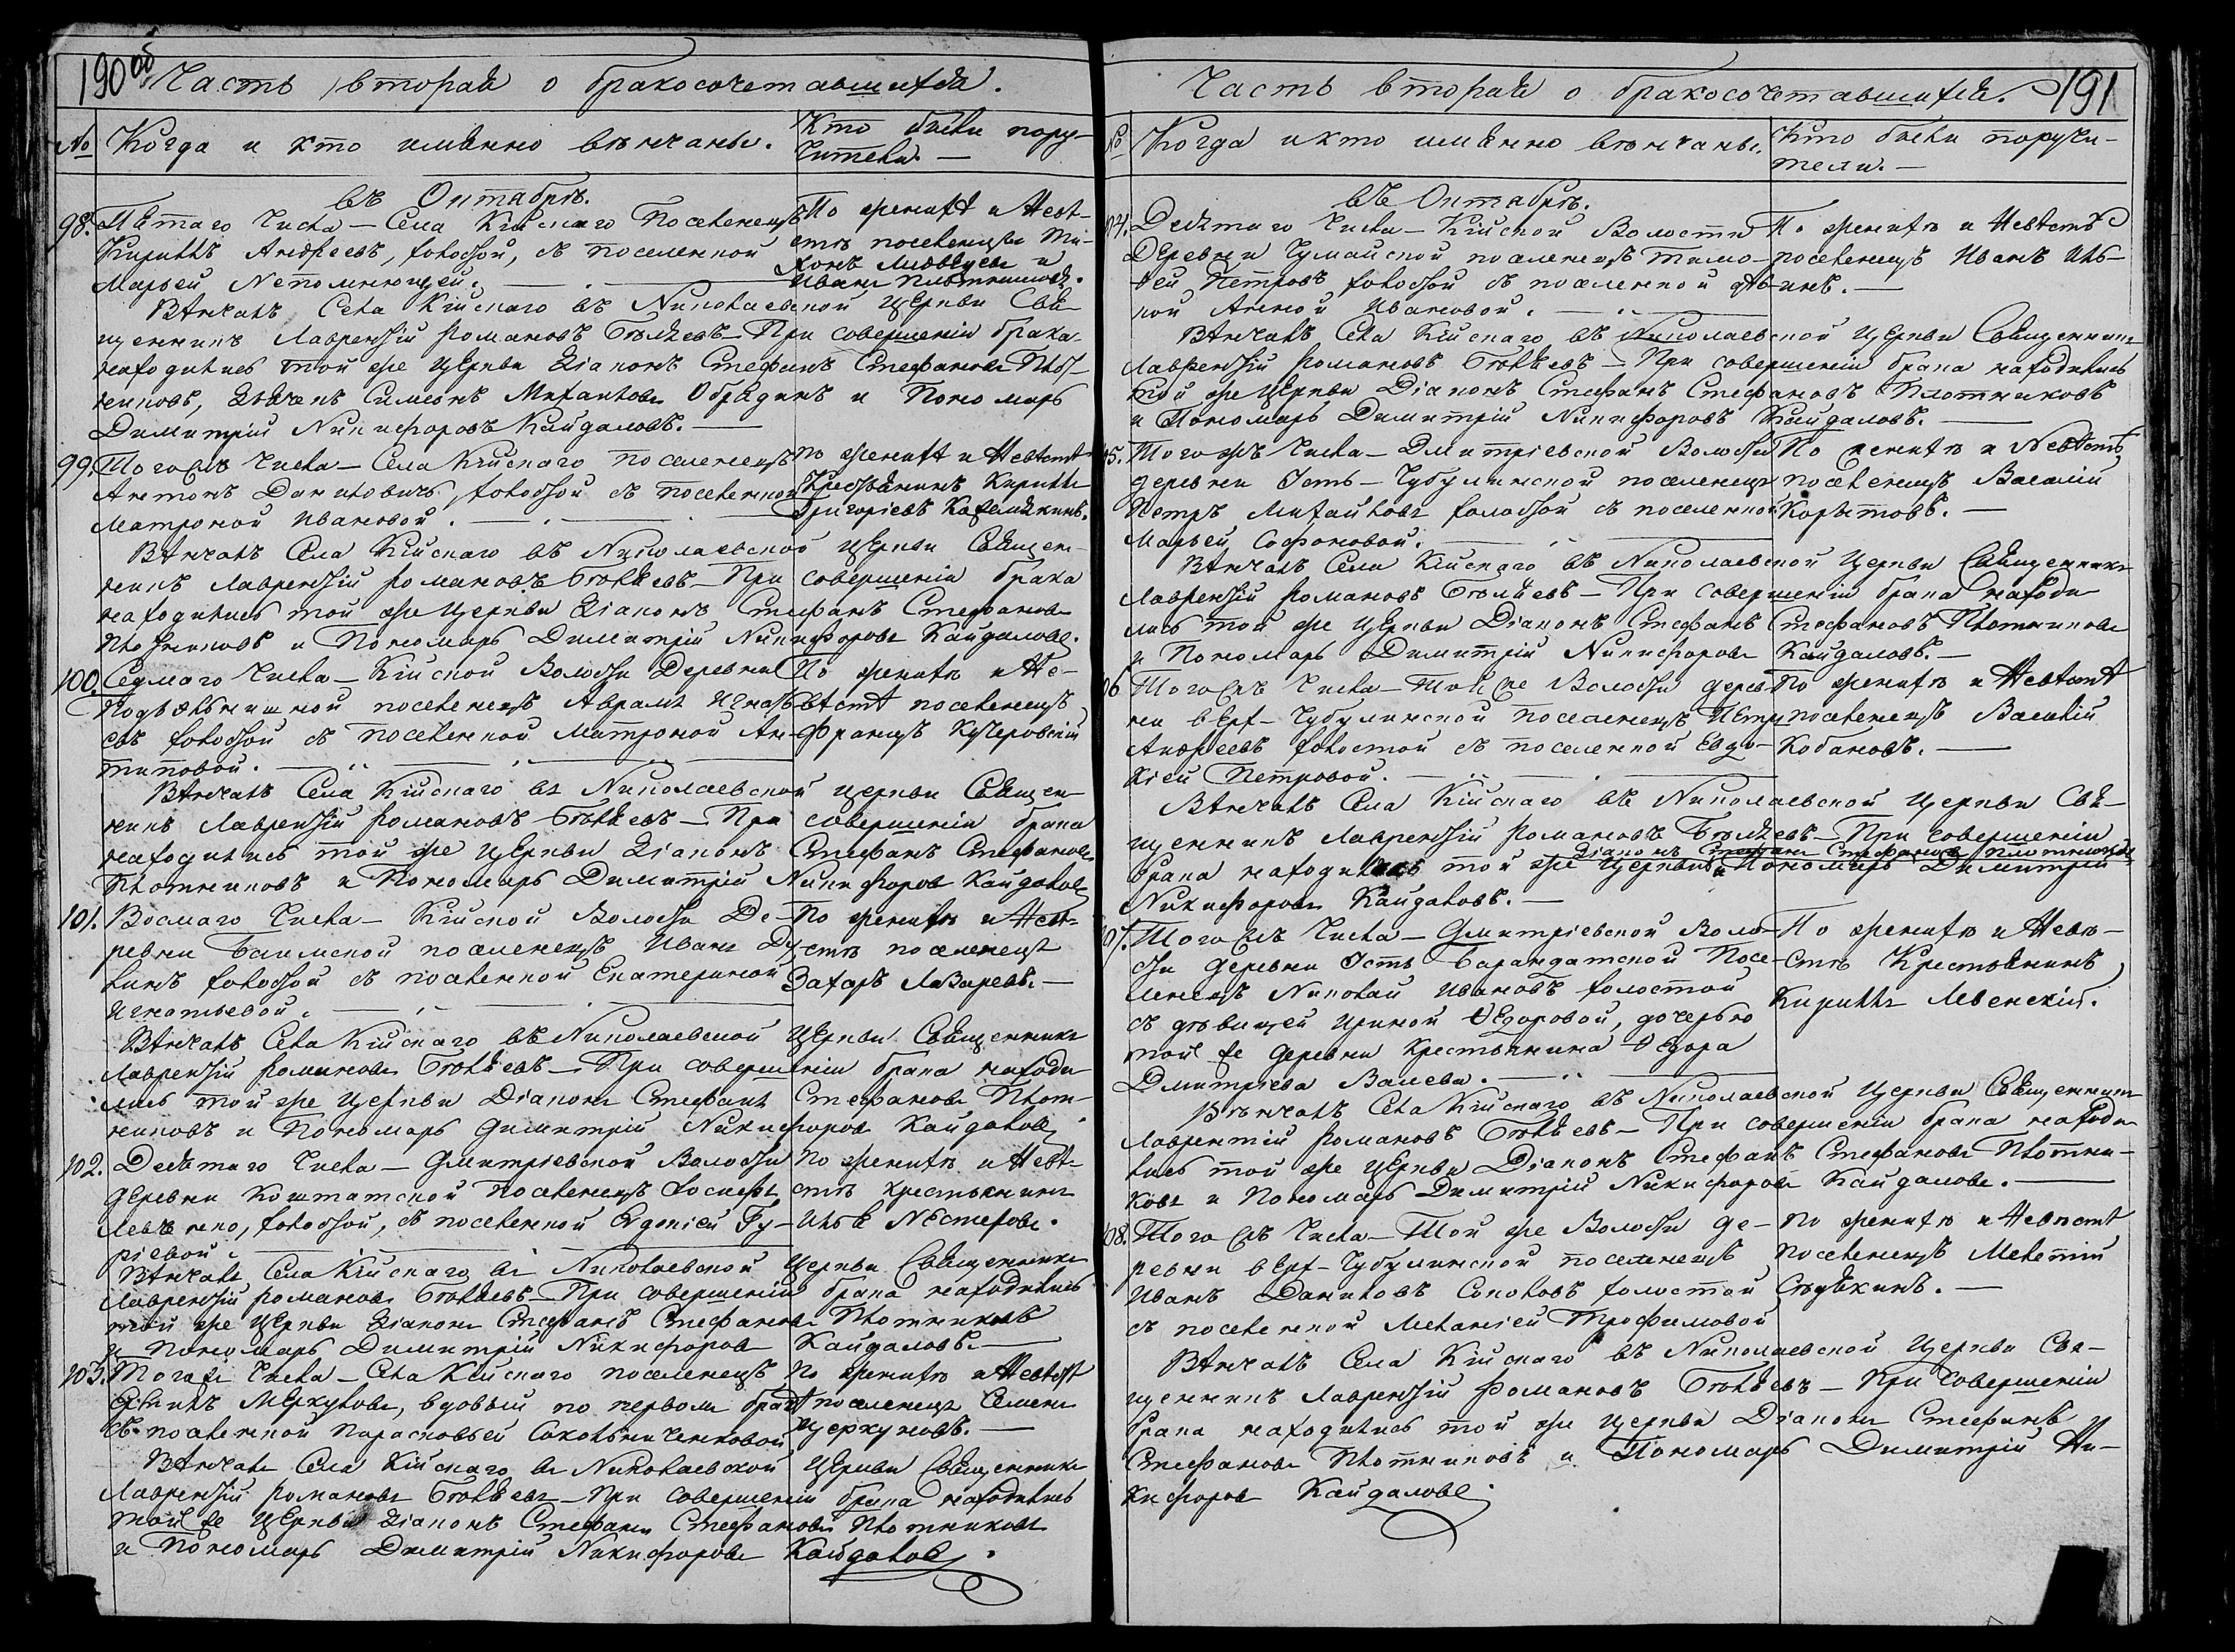 190 об
Часть вторая о бракосочетавшихся.
№ Когда и кто именно вѣнчаны. Кто были пору-
чители. —
въ Октябрѣ.
98. Пятаго числа — Села Кійскаго поселенецъ По женихѣ и невѣ-
Кириллъ Андреевъ, холостой, съ поселенкой стѣ поселенцы Ти-
Марьей Непомнющей. хонъ Медвѣдевъ и
Иванъ Плотниковъ.
Вѣнчалъ Села Кійскаго въ Николаевской Церкви Свя-
щенникъ Лаврентій Романовъ Бѣляевъ — При совершеніи брака
находились той же Церкви Діаконъ Стефанъ Стефановъ Плот-
никовъ, Дьячекъ Симеонъ Михаиловъ Обрядинъ и Пономарь
Димитрій Никифоровъ Кайдаловъ. —
99. Тогожъ числа — Села Кійскаго поселенецъ По женихѣ и невѣстѣ
Антонъ Даниловичъ, холостой съ поселенкой Крестьянинъ Кириллъ
Матроной Ивановой. Григоріевъ
Вѣнчалъ Села Кійскаго въ Николаевской Церкви Священ-
никъ Лаврентій Романовъ Бѣляевъ — При совершеніи брака
находились той же Церкви Діаконъ Стефанъ Стефановъ
Плотниковъ и Пономарь Димитрій Никифоровъ Кайдаловъ.
100. Седмаго числа — Кійской Волости Деревни По женихѣ и не-
Подъѣльнишной поселенецъ Аврамъ Игнать- вѣстѣ поселенецъ
евъ холостой съ поселенкой Матроной Ан- Францъ Кучеровскій
типовой.
Вѣнчалъ Села Кійскаго въ Николаевской Церкви Священ-
никъ Лаврентій Романовъ Бѣляевъ — При совершеніи брака
находились той же Церкви Діаконъ Стефанъ Стефановъ
Плотниковъ и Пономарь Димитрій Никифоровъ Кайдаловъ
101. Восмаго числа — Кійской Волости Де- По женихѣ и невѣ-
ревни Баимской поселенецъ Иванъ Ду- стѣ поселенецъ
линъ холостой съ поселенкой Екатериной Захаръ Лазаревъ. —
Игнатьевой.
Вѣнчалъ Села Кійскаго въ Николаевской Церкви Священникъ
Лаврентій Романовъ Бѣляевъ — При совершеніи брака находи
лись той же Церкви Діаконъ Стефанъ Стефановъ Плот-
никовъ и Пономарь Димитрій Никифоровъ Кайдаловъ
102. Десятаго числа — Дмитріевской Волости По женихѣ и невѣ-
деревни Коштатской поселенецъ Іосифъ стѣ крестьянинъ
Левченко, холостой, съ поселенкой Евдокіей Гу- Илья Нестеровъ.
ріевой.
Вѣнчалъ Села Кійскаго въ Николаевской Церкви Священникъ
Лаврентій Романовъ Бѣляевъ — При совершеніи брака находились
той же Церкви Діаконъ Стефанъ Стефановъ Плотниковъ
и Пономарь Димитрій Никифоровъ Кайдаловъ. —
103. Тогожъ числа — Села Кійскаго поселенецъ По женихѣ и невѣстѣ
Меркуловъ, вдовый по первомъ бракѣ поселенецъ Семенъ
съ поселенкой Парасковьей Сокольниченковой Церкуновъ. —
Вѣнчалъ Села Кійскаго въ Николаевской Церкви Священникъ
Лаврентій Романовъ Бѣляевъ — При совершеніи брака находились
той же Церкви Діаконъ Стефанъ Стефановъ Плотниковъ
и Пономарь Димитрій Никифоровъ Кайдаловъ.
Часть вторая о бракосочетавшихся. 191
№ Когда и кто именно вѣнчаны. Кто были поручи-
тели. —
въ Октябрѣ.
104. Десятаго числа — Кійской Волости По женихѣ и невѣстѣ
Деревни Чумайской поселенецъ Тимо- поселенецъ Иванъ Иль-
фей Петровъ холостой съ поселенкой дѣв- инъ. —
кой Анной Ивановой.
Вѣнчалъ Села Кійскаго въ Николаевской Церкви Священникъ
Лаврентій Романовъ Бѣляевъ — При совершеніи брака находились
той же Церкви Діаконъ Стефанъ Стефановъ Плотниковъ
и Пономарь Димитрій Никифоровъ Кайдаловъ. —
105. Тогожъ числа — Дмитріевской Волости По женихѣ и невѣстѣ
деревни Усть-Чубулинской поселенецъ поселенецъ Василій
Петръ Михайловъ холостой съ поселенкой Корытовъ. —
Марьей Софоновой.
Вѣнчалъ Села Кійскаго въ Николаевской Церкви Священникъ
Лаврентій Романовъ Бѣляевъ — При совершеніи брака находи
лись той же Церкви Діаконъ Стефанъ Стефановъ Плотниковъ
и Пономарь Димитрій Никифоровъ Кайдаловъ. —
106 Тогожъ числа — Той же Волости дерев- По женихѣ и невѣстѣ
ни Верх-Чубулинской поселенецъ Петръ поселенецъ Василій
Андреевъ холостой съ поселенкой Евдо- Кобановъ. —
кіей Петровой.
Вѣнчалъ Села Кійскаго въ Николаевской Церкви Свя-
щенникъ Лаврентій Романовъ Бѣляевъ — При совершеніи
Діаконъ Стефанъ Стефановъ Плотниковъ
брака находились той же Церкви и Пономарь Димитрій
Никифоровъ Кайдаловъ. —
107. Тогожъ числа — Дмитріевской Воло- По женихѣ и невѣ-
сти Деревни Усть Барандатской посе- стѣ Крестьянинъ
ленецъ Николай Ивановъ холостой Кириллъ Левенскій.
съ дѣвицей Ириной Ѳедоровой, дочерью
той же деревни Крестьянина Ѳедора
Дмитріева Валева.
Вѣнчалъ Села Кійскаго въ Николаевской Церкви Священникъ
Лаврентій Романовъ Бѣляевъ — При совершеніи брака находи
лись той же Церкви Діаконъ Стефанъ Стефановъ Плотни-
ковъ и Пономарь Димитрій Никифоровъ Кайдаловъ. —
108. Тогожъ числа — Той же Волости де- По женихѣ и невѣстѣ
ревни Верх-Чубулинской поселенецъ поселенецъ Мелетій
Иванъ Даниловъ Соколовъ холостой Сѣдѣкинъ. —
съ поселенкой Меланіей Трофимовой
Вѣнчалъ Села Кійскаго въ Николаевской Церкви Свя-
щенникъ Лаврентій Романовъ Бѣляевъ — При совершеніи
брака находились той же Церкви Діаконъ Стефанъ
Стефановъ Плотниковъ и Пономарь Димитрій Ни-
кифоровъ Кайдаловъ